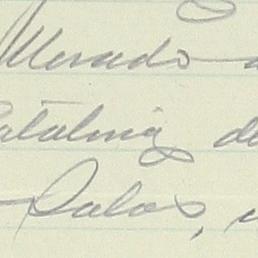 Mercado
Catalina de
Salas,